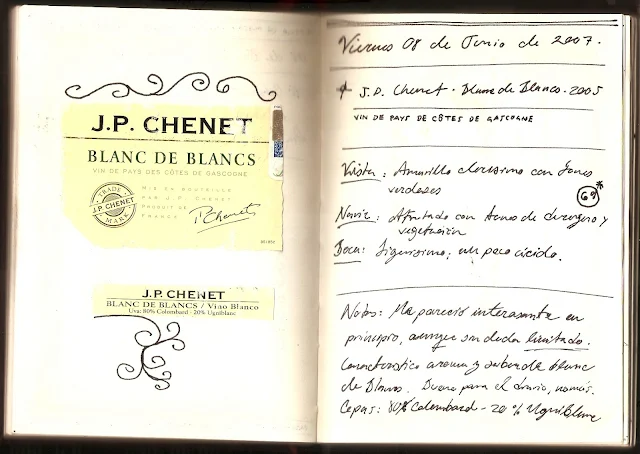 J.P. CHENET
BLANC DE BLANCS
VIN DE PAYS DES CÔTES DE GASCOGNE
TRADE
J.P. CHENET
MARK
MIS EN BOUTEILLE
PAR J.P. CHENET
PRODUIT DE
FRANCE
J.P. CHENET
BLANC DE BLANCS / Vino Blanco
Uva: 80% Colombard - 20% Ugniblanc
Viernes 08 de Junio de 2007.
J.P. Chenet - Blanc de Blanco - 2005
VIN DE PAYS DE CÔTES DE GASCOGNE
Vista: Amarillo clarissimo con tonos
verdosos
Nariz: Afrutado con tonos de durazno y
vegetación
Boca: Ligerissimo, un poco ácido.
Notas: Me pareció interesante en
principio, aunque sin duda limitado.
Característico aroma y sabor de blanc
de Blancs. Bueno para el diario, nomás.
Cepas: 80% Colombard - 20% Ugniblanc